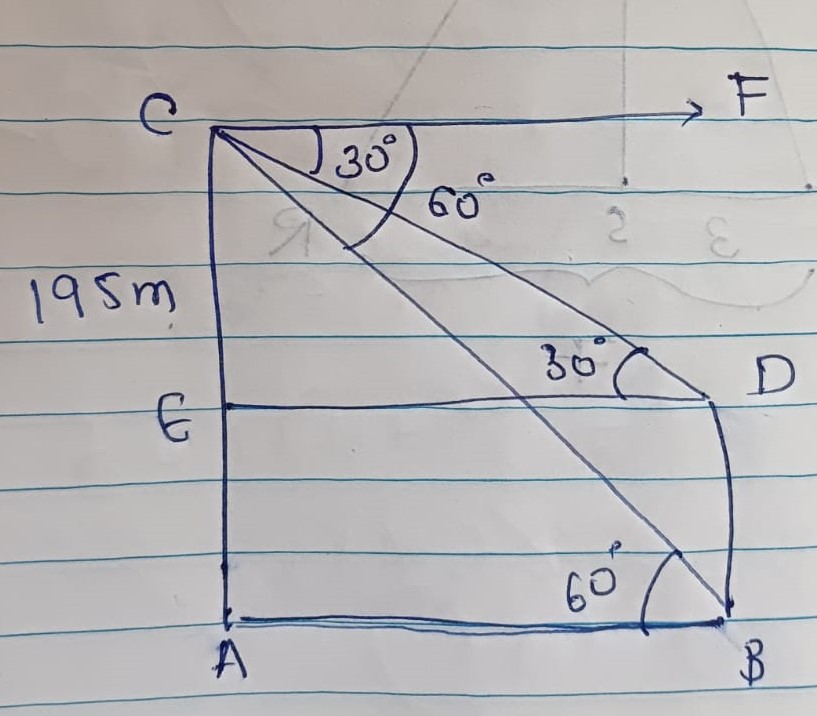 C F
30°
60°
195m
30° D
E
60°
A B